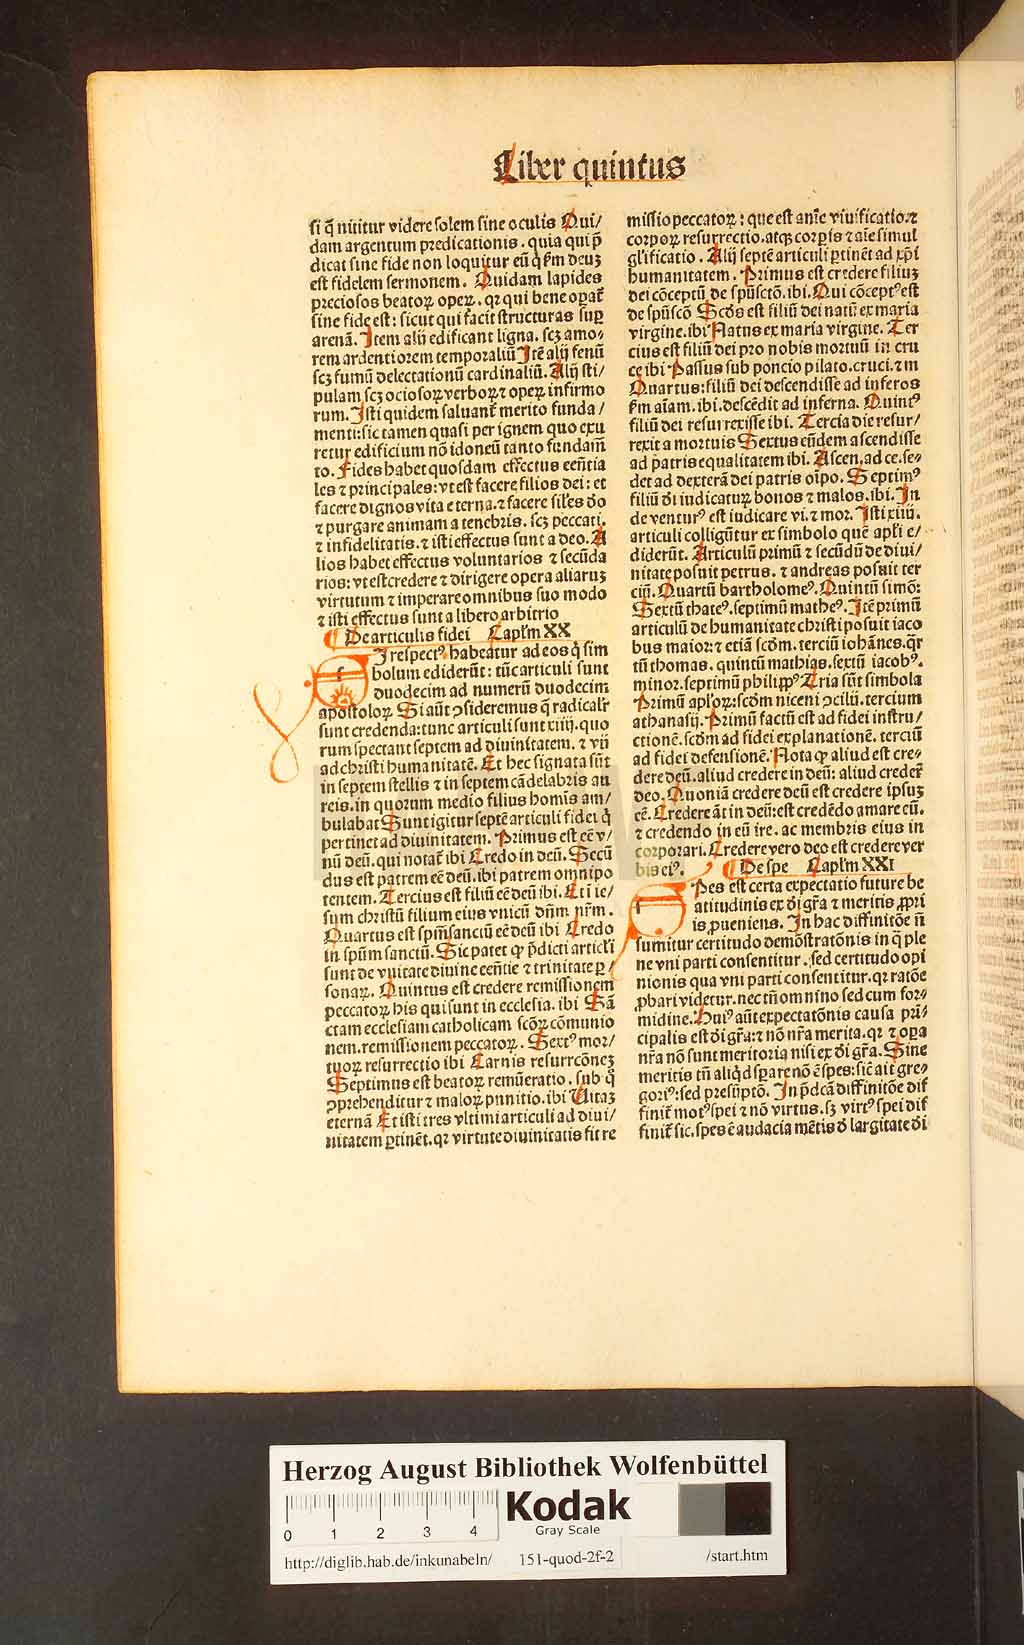 Liber quintus
si q̄ nititur videre solem sine oculis Qui/
dam argentum predicationis. quia qui p̄
dicat sine fide non loquitur eū q̄ ẜm deuȝ
est fidelem sermonem. Quidam lapides
preciosos beatoꝝ opeꝝ. qꝛ qui bene oꝑat̄
sine fide est: sicut qui facit structuras suꝑ
arenā. Item alij edificant ligna. scȝ amo⸗
rem ardentiorem temporaliū Itē alij fenū
scȝ fumū delectationū cardinaliū. Alij sti/
pulam scȝ ociosoꝝ verboꝝ ⁊ opeꝝ infirmo
rum. Isti quidem saluant̄ merito funda/
menti: sic tamen quasi per ignem quo exu
retur edificium nō idoneū tanto fundam̄
to. Fides habet quosdam effectus eēntia
les ⁊ principales: vt est facere filios dei: et
facere dignos vita eterna. ⁊ facere siles deo
⁊ purgare animam a tenebris. scȝ peccati.
⁊ infidelitatis. ⁊ isti effectus sunt a deo. A
lios habet effectus voluntarios ⁊ secūda
rios: vt est credere ⁊ dirigere opera aliaruȝ
virtutum ⁊ imperare omnibus suo modo
⁊ isti effectus sunt a libero arbitrio
¶ De articulis fidei Caplm XX
SI respectꝰ habeatur ad eos q̄ sim
bolum ediderūt: tūc articuli sunt
duodecim ad numerū duodecim
apostoloꝝ Si aūt ꝯsideremus q̄ radicalr̄
sunt credenda: tunc articuli sunt xiiij. quo
rum spectant septem ad diuinitatem. ⁊ vij
ad christi humanitatē. Et hec signata sūt
in septem stellis ⁊ in septem cādelabris au
reis. in quorum medio filius homīs am/
bulabat Sunt igitur septē articuli fidei q̄
pertinet ad diuinitatem. Primus est eē v/
nū deū. qui notat̄ ibi Credo in deū. Secū
dus est patrem eē deū. ibi patrem omnipo
tentem. Tercius est filiū eē deū ibi. Et ie/
sum christū filium eius vnicū dn̄m nr̄m.
Quartus est spm̄ sanctū eē deū ibi Credo
in spūm sanctū. Sic patet ꝙ p̄dicti articli
sunt de vnitate diuine eēntie ⁊ trinitate ꝑ/
sonaꝝ. Quintus est credere remissionem
peccatoꝝ his qui sunt in ecclesia. ibi Sā
ctam ecclesiam catholicam scōꝝ cōmunio
nem. remissionem peccatoꝝ. Sextꝰ mor/
tuoꝝ resurrectio ibi Carnis resurrcōneȝ
Septimus est beatoꝝ remūeratio. sub q̄
ꝯprehenditur ⁊ maloꝝ punitio. ibi Uitaȝ
eternā Et isti tres vltimi articuli ad diui/
nitatem ꝑtinēt. qꝛ virtute diuinitatis fit re
missio peccatoꝝ: que est anīe viuificatio. ⁊
corpoꝝ resurrectio. atqȝ corꝑis ⁊ aīe simul
glificatio. Alij septē articuli ꝑtinēt ad xp̄i
humanitatem. Primus est credere filiuȝ
dei cōceptū de spūsctō. ibi. Qui cōceptꝰ est
de spūscō Scds est filiū dei natū ex maria
virgine. ibi Natus ex maria virgine. Ter
cius est filiū dei pro nobis mortuū in cru
ce ibi Passus sub poncio pilato. cruci. ⁊ m
Quartus: filiū dei descendisse ad inferos
ẜm aīam. ibi. descēdit ad inferna. Quintꝰ
filiū dei resurrexisse ibi. Tercia die resur/
rexit a mortuis Sextus eūdem ascendisse
ad patris equalitatem ibi. Ascen. ad ce. se⸗
det ad dexterā dei patris oīpo. Septimꝰ
filiū di iudicaturꝝ bonos ⁊ malos. ibi. In
de venturꝰ est iudicare vi. ⁊ mor. Isti xiiij.
articuli colligūtur ex simbolo quē apli e/
diderūt. Articulū primū ⁊ secūdū de diui/
nitate posuit petrus. ⁊ andreas posuit ter
ciū. Quartū bartholomeꝰ. Quintū simō:
Sextū thateꝰ. septimū matheꝰ. Itē primū
articulū de humanitate christi posuit iaco
bus maior: ⁊ etiā scdm. terciū iohānes. qr
tū thomas. quintū mathias. sextū iacobꝰ.
minor. septimū philippꝰ Tria sūt simbola
Primū aploꝝ: scdm niceni ꝯcilij. tercium
athanasij. Primū factū est ad fidei instru/
ctionē. scdm ad fidei explanationē. terciū
ad fidei defensionē. Nota ꝙ aliud est cre⸗
dere deū. aliud credere in deū: aliud creder̄
deo. Quoniā credere deū est credere ipsuȝ
eē. Credere āt in deū: est credēdo amare eū.
⁊ credendo in eū ire. ac membris eius in
corporari. Credere vero deo est credere ver
bis eiꝰ. ¶ De spe Caplm XXI
SPes est certa expectatio future be
atitudinis ex di gr̄a ⁊ meritis ꝓpri
is ꝓueniens. In hac diffinitōe n̄
sumitur certitudo demōstratōnis in q̄ ple
ne vni parti consentitur. sed certitudo opi
nionis qua vni parti consentitur. qꝛ ratōe
ꝓbari videtur. nec tn̄ omnino sed cum for⸗
midine. Huiꝰ aūt expectatōnis causa prī⸗
cipalis est di gr̄a: ⁊ nō nr̄a merita. qꝛ ⁊ oꝑa
nr̄a nō sunt meritoria nisi ex di gr̄a. Sine
meritis tn̄ aliqd sꝑare nō ē spes: sic̄ ait gre⸗
goriꝰ: sed presūptō. In p̄dcā diffinitōe dif
finit̄ motꝰ spei ⁊ nō virtus. sȝ virtꝰ spei dif
finit̄ sic. spes ē audacia mētis d̄ largitate di
Herzog August Bibliothek Wolfenbüttel
0 1 2 3 4
Kodak
Gray Scale
http://diglib.hab.de/inkunabeln/ 151-quod-2f-2 /start.htm